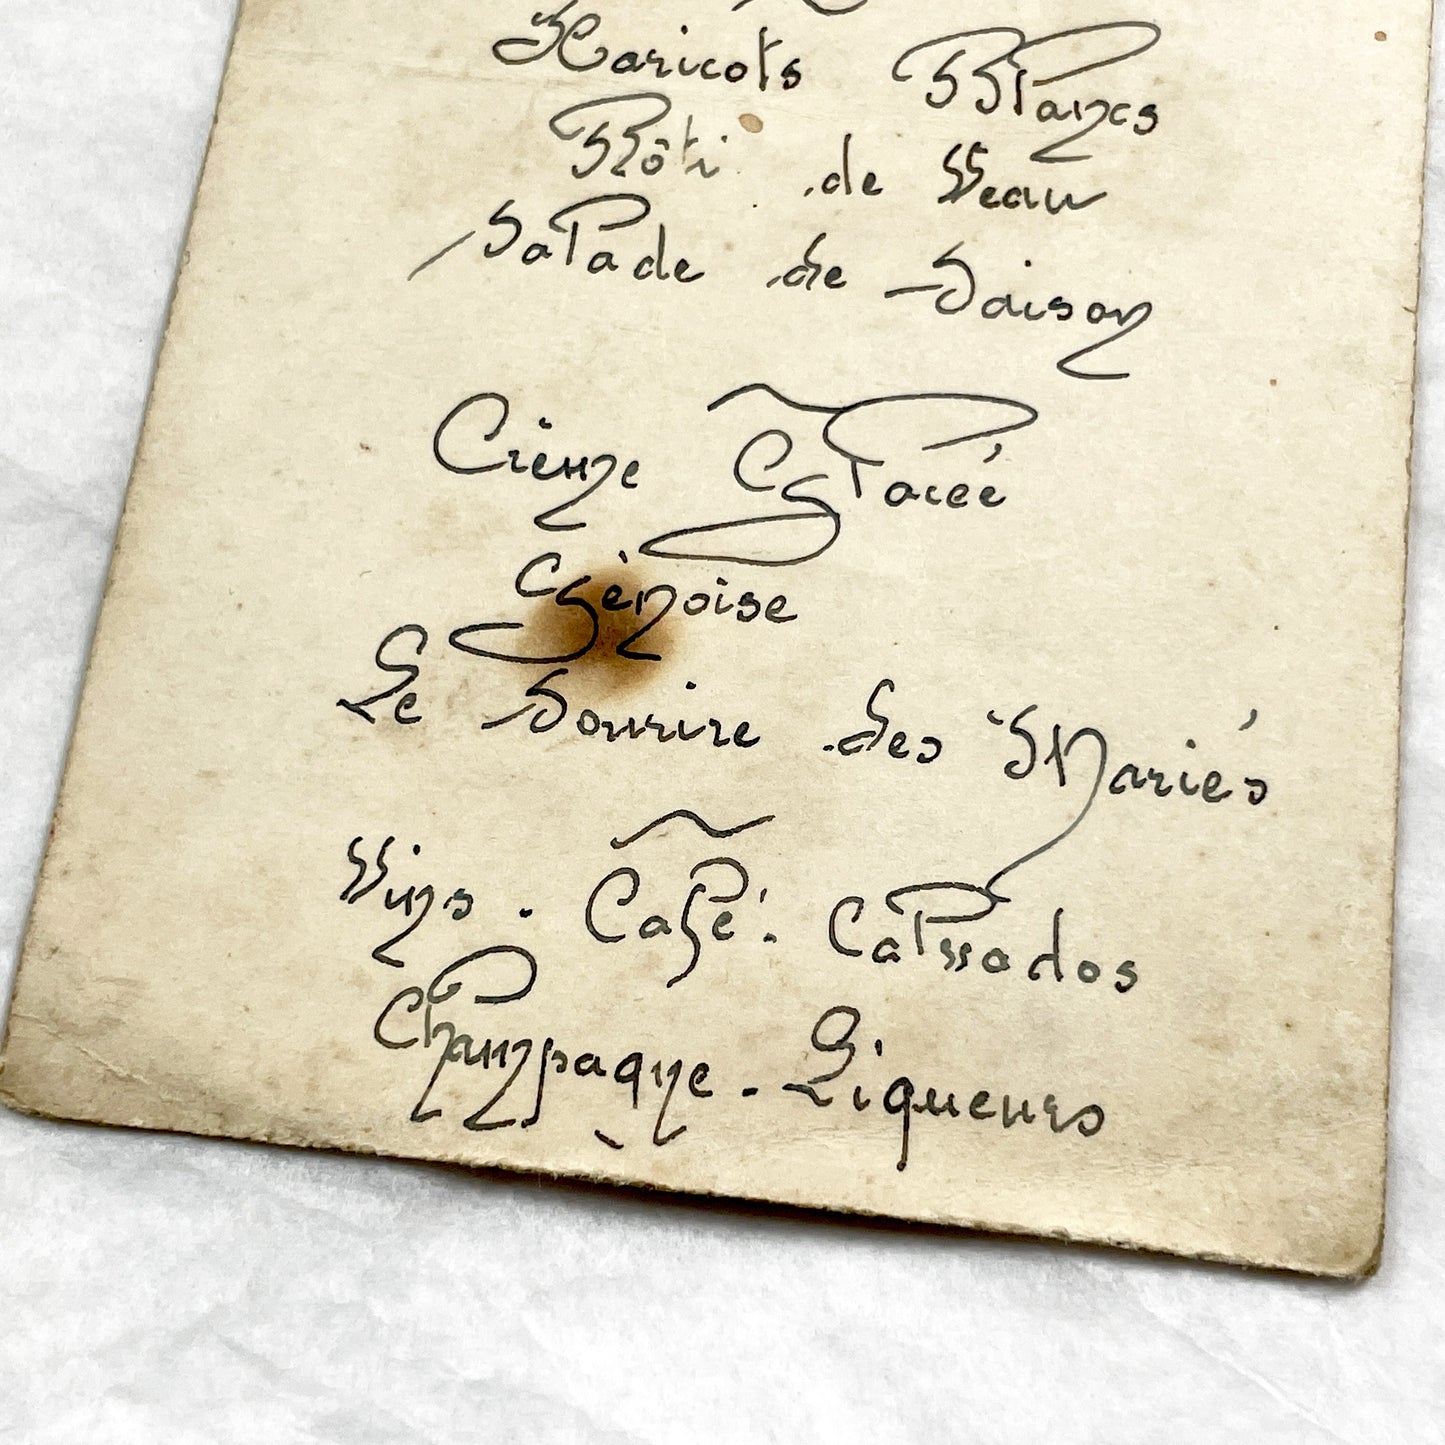 Haricots Blancs
Rôti de Veau
Salade de Saison
Crème Glacée
Génoise
Le Sourire des Mariés
Vins. Café. Calvados
Champagne. Liqueurs